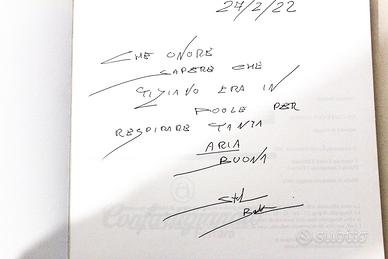 24/2/22
CHE ONORE
SAPERE CHE
TIZIANO ERA IN
POOLE PER
RESPIRARE TANTA
ARIA
BUONA
subito